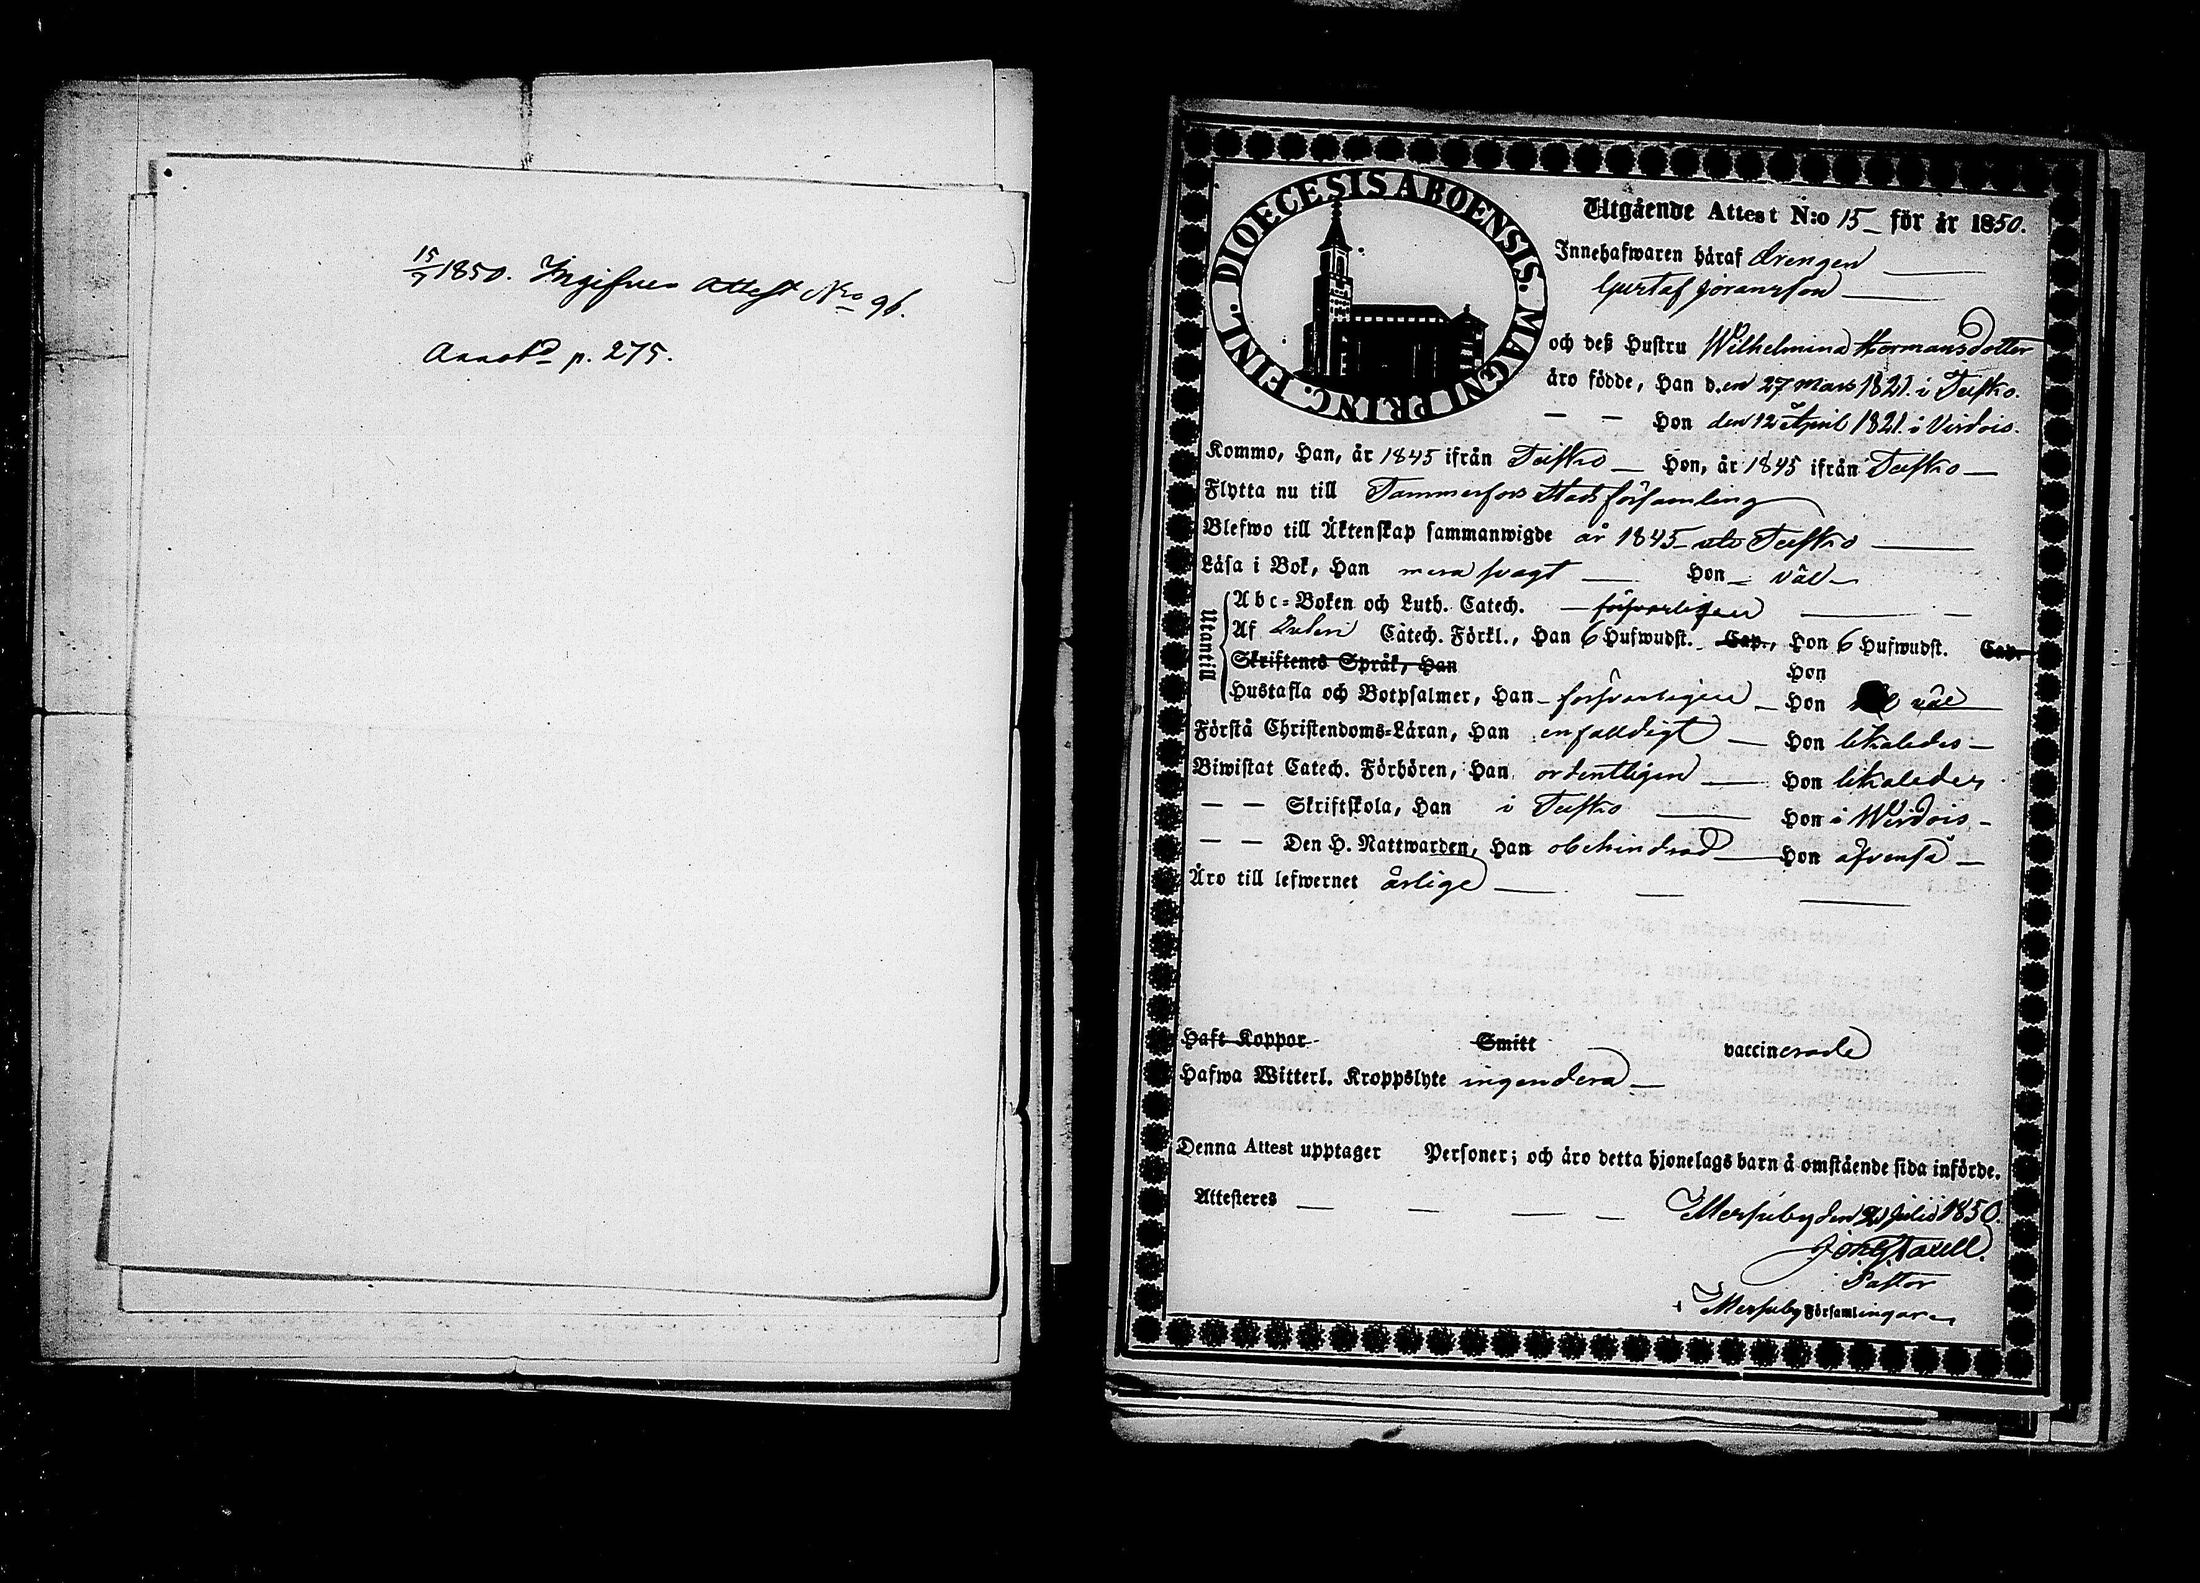 15/7 1850. Ingifven Attest No 96.
Annotd p. 275.
DIOECESIS ABOENSIS. MAGNI PRINC. FINL.
Utgående Attest N:o 15 för år 1850.
Innehafwaren häraf Drengen
Gustaf Göransson
och deß Hustru Wilhelmina Hermansdotter
äro födde, Han d.en 27 Mars 1821. i Teisko.
— — Hon den 12 April 1821. i Virdois.
Kommo, Han, år 1845 ifrån Teisko — Hon, år 1845 ifrån Teisko —
Flytta nu till Tammerfors Stads församling
Blefwo till Äktenskap sammanwigde år 1845 uti Teisko
Läsa i Bok, Han mera svagt — Hon — väl —
Utantill
Abc=Boken och Luth. Catech. — försvarligen
Af Catech. Förkl., Han 6 Hufwudst. Cap., Hon 6 Hufwudst. Cap.
Skriftenes Språk, Han Hon
Hustafla och Botpsalmer, Han — försvarligen — Hon väl
Förstå Christendoms=Läran, Han enfaldigt — Hon likaledes —
Biwistat Catech. Förhören, Han ordentligen — Hon likaledes
— — Skriftskola, Han i Teisko — Hon i Wirdois —
— — Den H. Nattwarden, Han obehindrad — Hon äfvenså —
Äro till lefwernet ärlige
Haft Koppor Smitt vaccinerade
Hafwa Witterl. Kroppslyte ingendera —
Denna Attest upptager Personer; och äro detta hjonelags barn å omstående sida införde.
Attesteres — — — — Messuby den Julii 1850.
Pastor
i Messuby Församlingar